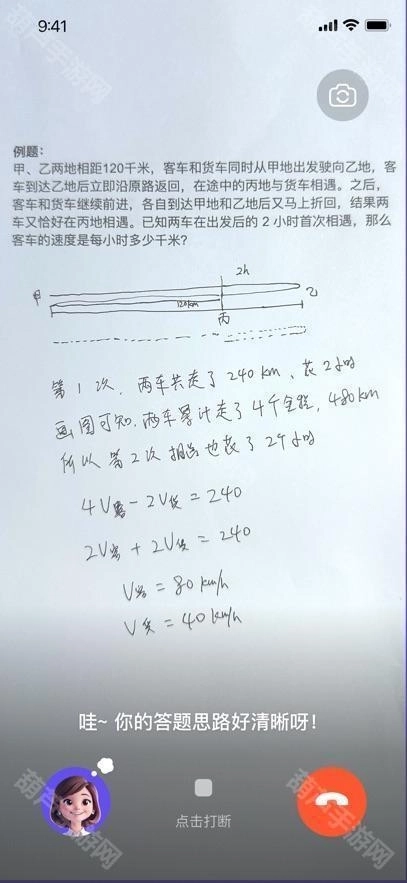 9:41
例题：
甲、乙两地相距120千米，客车和货车同时从甲地出发驶向乙地，客
车到达乙地后立即沿原路返回，在途中的丙地与货车相遇。之后，
客车和货车继续前进，各自到达甲地和乙地后又马上折回，结果两
车又恰好在丙地相遇。已知两车在出发后的 2 小时首次相遇，那么
客车的速度是每小时多少千米?
2h
甲 乙
120km
丙
第1次，两车共走了240km、花2小时
画图可知，两车累计走了4个全程，480km
所以第2次相遇也花了2个小时
4V客－2V货＝240
2V客＋2V货＝240
V客＝80km/h
V货＝40km/h
哇~ 你的答题思路好清晰呀！
点击打断
葫芦手游网
葫芦手游网